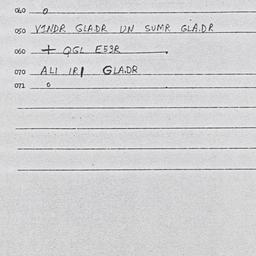 040 0
050 VINDR GLADR UN SUMR GLA.DR
060 + QGL E53R .
070 ALI IRI GLA.DR
071 0